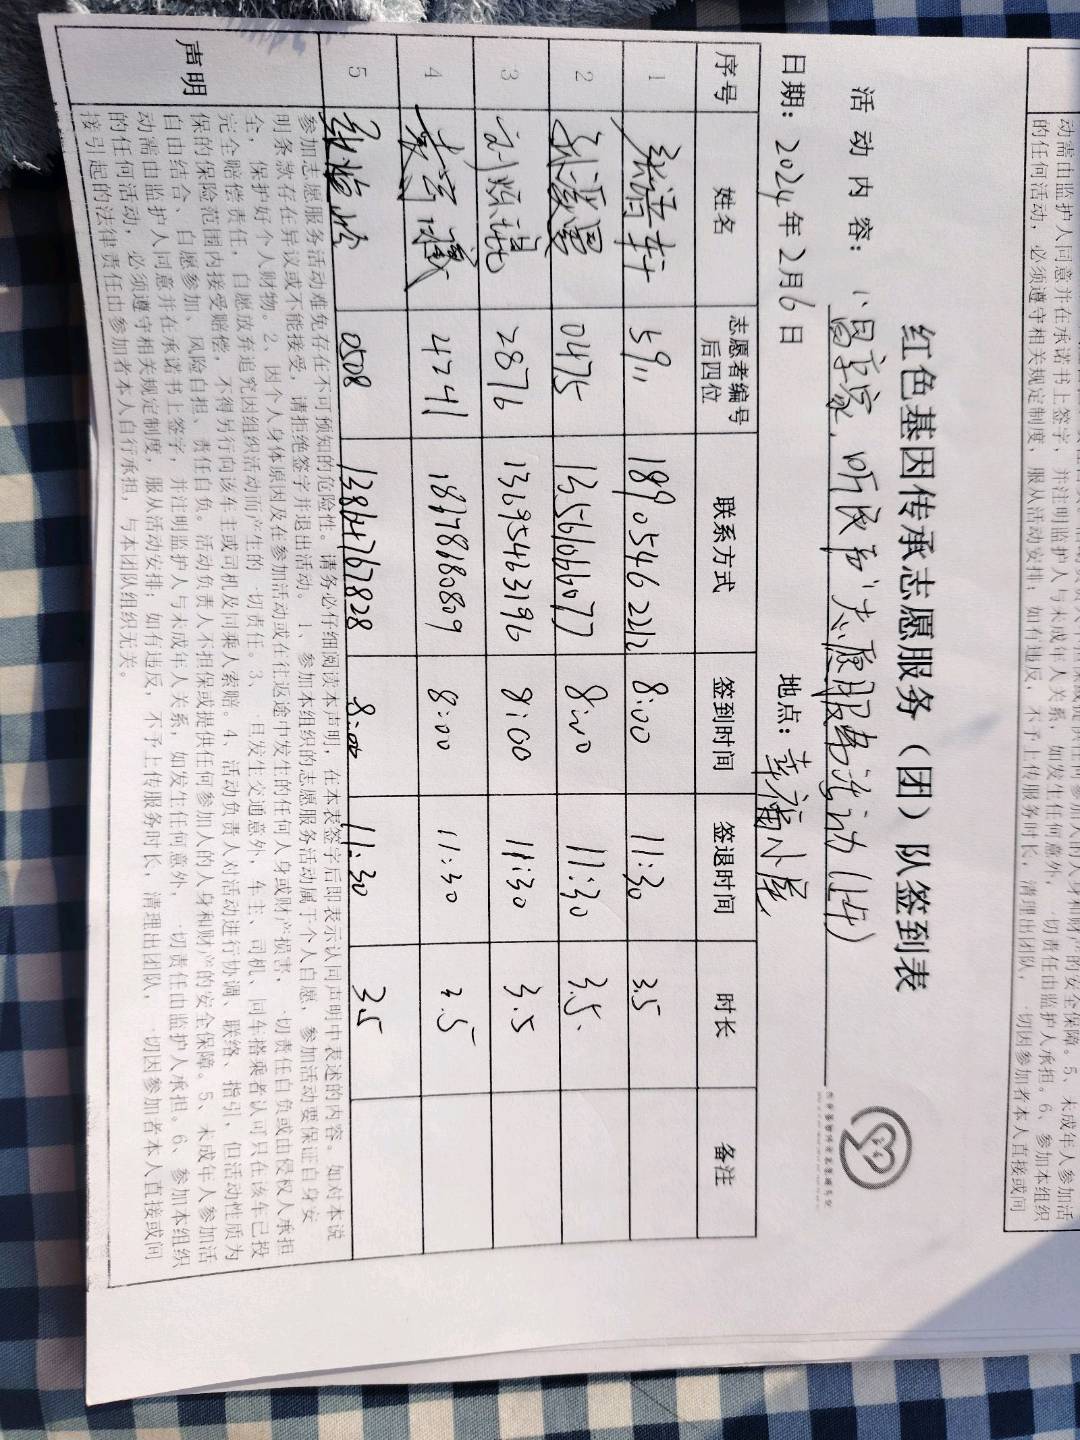 动需由监护人同意并在承诺书上签字，并注明监护人与未成年人关系，如发生任何意外，一切责任由监护人承担。6、参加本组织
的任何活动，必须遵守相关规定制度，服从活动安排；如有违反，不予上传服务时长，清理出团队，一切因参加者本人直接或间
红色基因传承志愿服务（团）队签到表
活动内容：志愿服务活动（上午）
日期：2024年2月6日 地点：幸福小屋
序号 姓名 志愿者编号后四位 联系方式 签到时间 签退时间 时长 备注
1 5911 189 0546 2212 8:00 11:30 3.5
2 0475 13561666077 8:00 11:30 3.5.
3 2876 13695463196 8:00 11:30 3.5
4 4741 18678680809 8:00 11:30 3.5
5 0508 13864767828 8:00 11:30 3.5
声明
参加志愿服务活动难免存在不可预知的危险性。请务必仔细阅读本声明，在本表签字后即表示认同声明中表述的内容。如对本说
明条款存在异议或不能接受，请拒绝签字并退出活动。1、参加本组织的志愿服务活动属于个人自愿，参加活动要保证自身安
全，保护好个人财物。2、因个人身体原因及在参加活动或在往返途中发生的任何人身或财产损害，一切责任自负或由侵权人承担
完全赔偿责任，自愿放弃追究因组织活动而产生的一切责任。3、一旦发生交通意外，车主、司机、同车搭乘者认可只在该车已投
保的保险范围内接受赔偿，不得另行向该车主或司机及同乘人索赔。4、活动负责人对活动进行协调、联络、指引，但活动性质为
自由结合、自愿参加、风险自担、责任自负。活动负责人不担保或提供任何参加人的人身和财产的安全保障。5、未成年人参加活
动需由监护人同意并在承诺书上签字，并注明监护人与未成年人关系，如发生任何意外，一切责任由监护人承担。6、参加本组织
的任何活动，必须遵守相关规定制度，服从活动安排；如有违反，不予上传服务时长，清理出团队，一切因参加者本人直接或间
接引起的法律责任由参加者本人自行承担，与本团队组织无关。